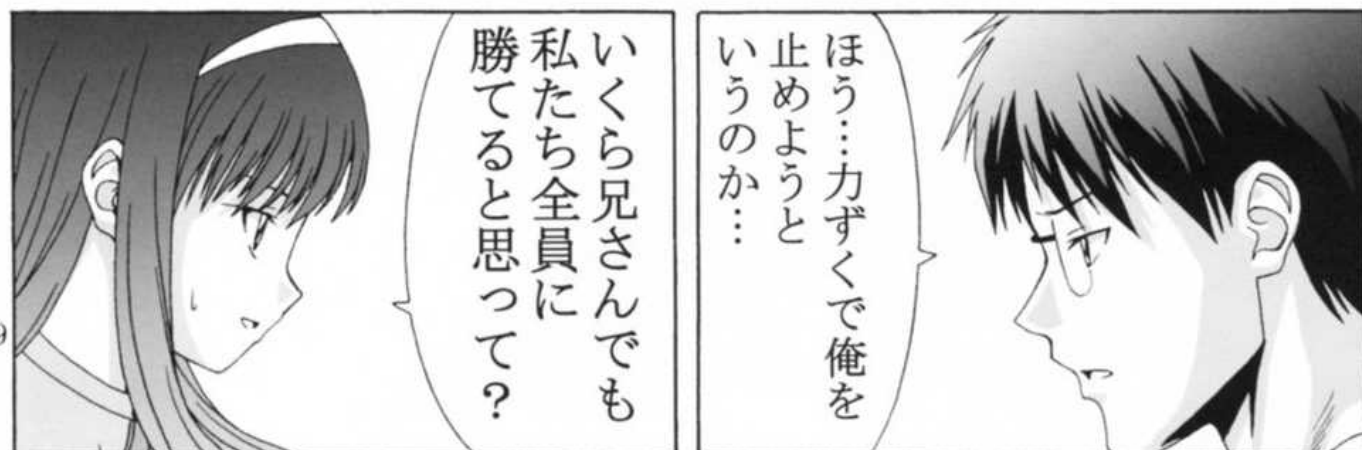 ほう…力ずくで俺を
止めようと
いうのか…
いくら兄さんでも
私たち全員に
勝てると思って?
9